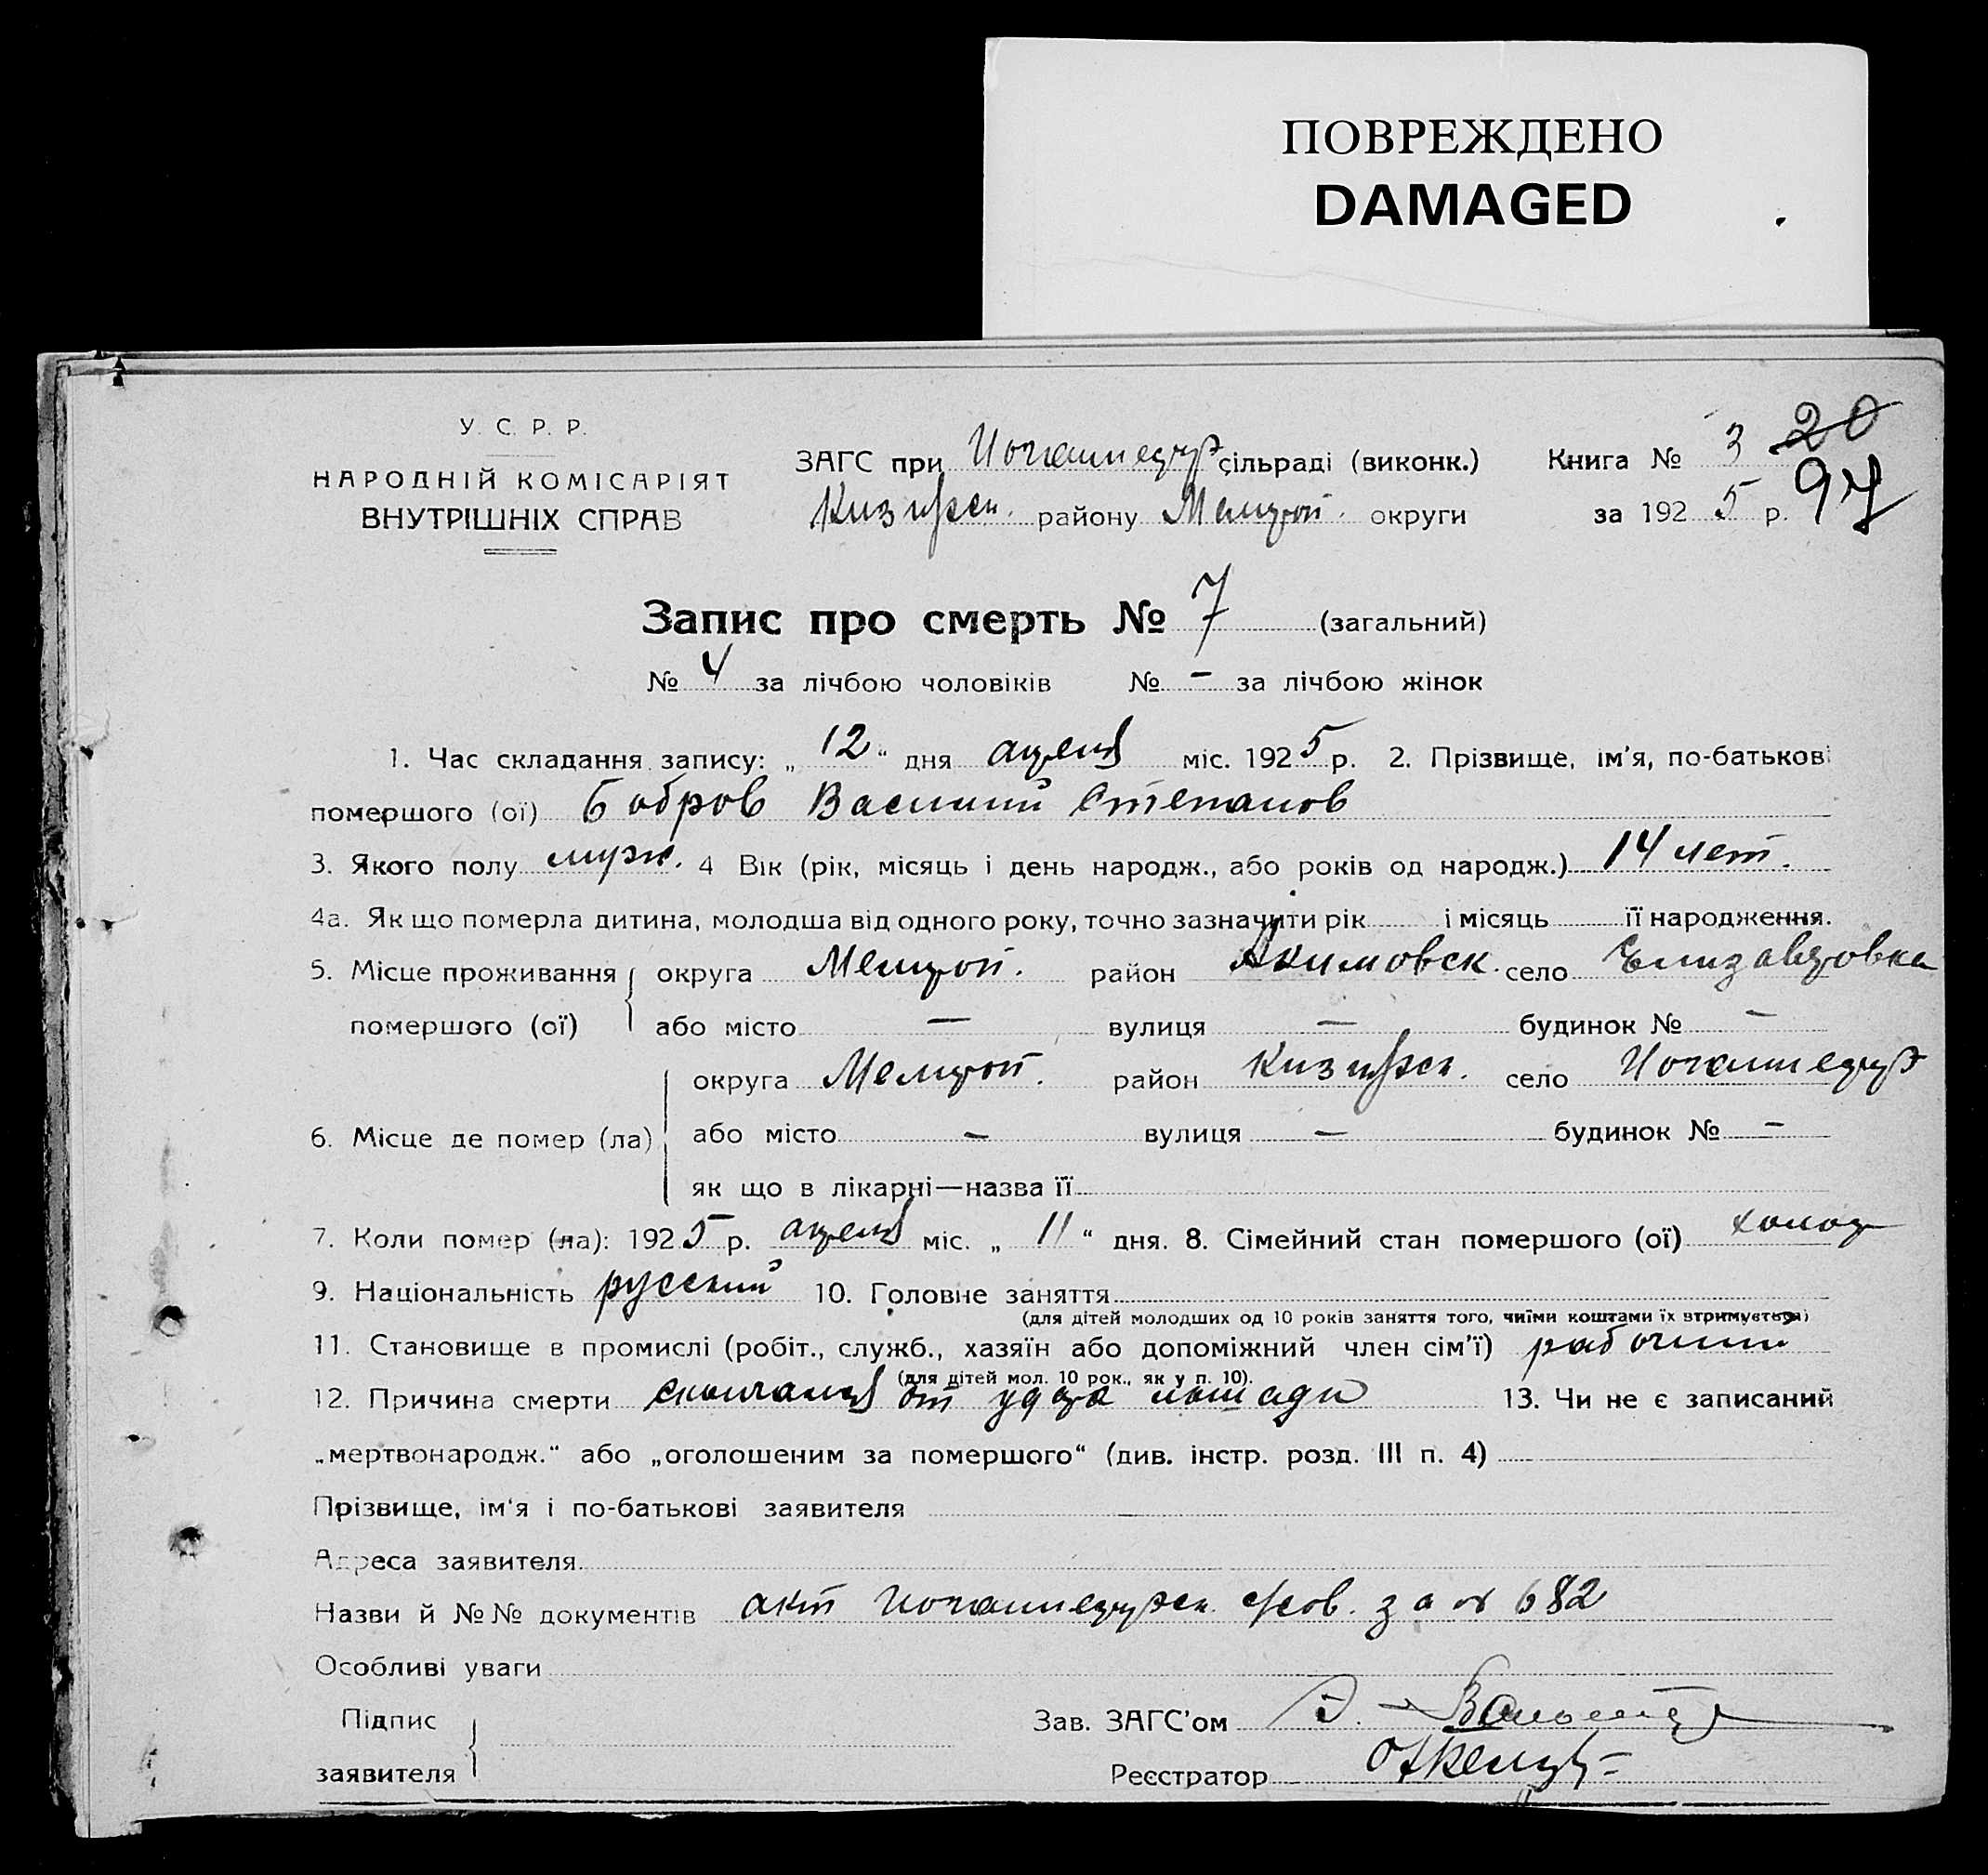 ПОВРЕЖДЕНО
DAMAGED
У. С. Р. Р.
НАРОДНІЙ КОМІСАРІЯТ
ВНУТРІШНІХ СПРАВ
ЗАГС при сільраді (виконк.)
району Мелитоп. округи
Книга № 3 20
за 1925 р. 97
Запис про смерть № 7 (загальний)
№ 4 за лічбою чоловіків № – за лічбою жінок
1. Час складання запису: „ 12 “ дня апреля міс. 1925 р. 2. Прізвище, ім'я, по-батькові
помершого (ої) Бобров Василий Степанов
3. Якого полу муж. 4 Вік (рік, місяць і день народж., або років од народж.) 14 лет.
4а. Як що померла дитина, молодша від одного року, точно зазначити рік і місяць її народження.
5. Місце проживання округа Мелитоп. район Акимовск. село Елизаветовка
помершого (ої) або місто — вулиця — будинок № —
округа Мелитоп. район село
6. Місце де помер (ла) або місто – вулиця — будинок № –
як що в лікарні—назва її
7. Коли помер (ла): 1925 р. апреля міс. „ 11 “ дня. 8. Сімейний стан помершого (ої) холост
9. Національність русский 10. Головне заняття
(для дітей молодших од 10 років заняття того, чиїми коштами їх втримується)
11. Становище в промислі (робіт., служб., хазяїн або допоміжний член сім'ї) рабочий
(для дітей мол. 10 рок., як у п. 10).
12. Причина смерти скончался от удара лошади 13. Чи не є записаний
„мертвонародж.“ або „оголошеним за помершого“ (див. інстр. розд. III п. 4)
Прізвище, ім'я і по-батькові заявителя
Адреса заявителя
Назви й №№ документів акт с/сов. за № 682
Особливі уваги
Підпис
заявителя
Зав. ЗАГС'ом
Реєстратор